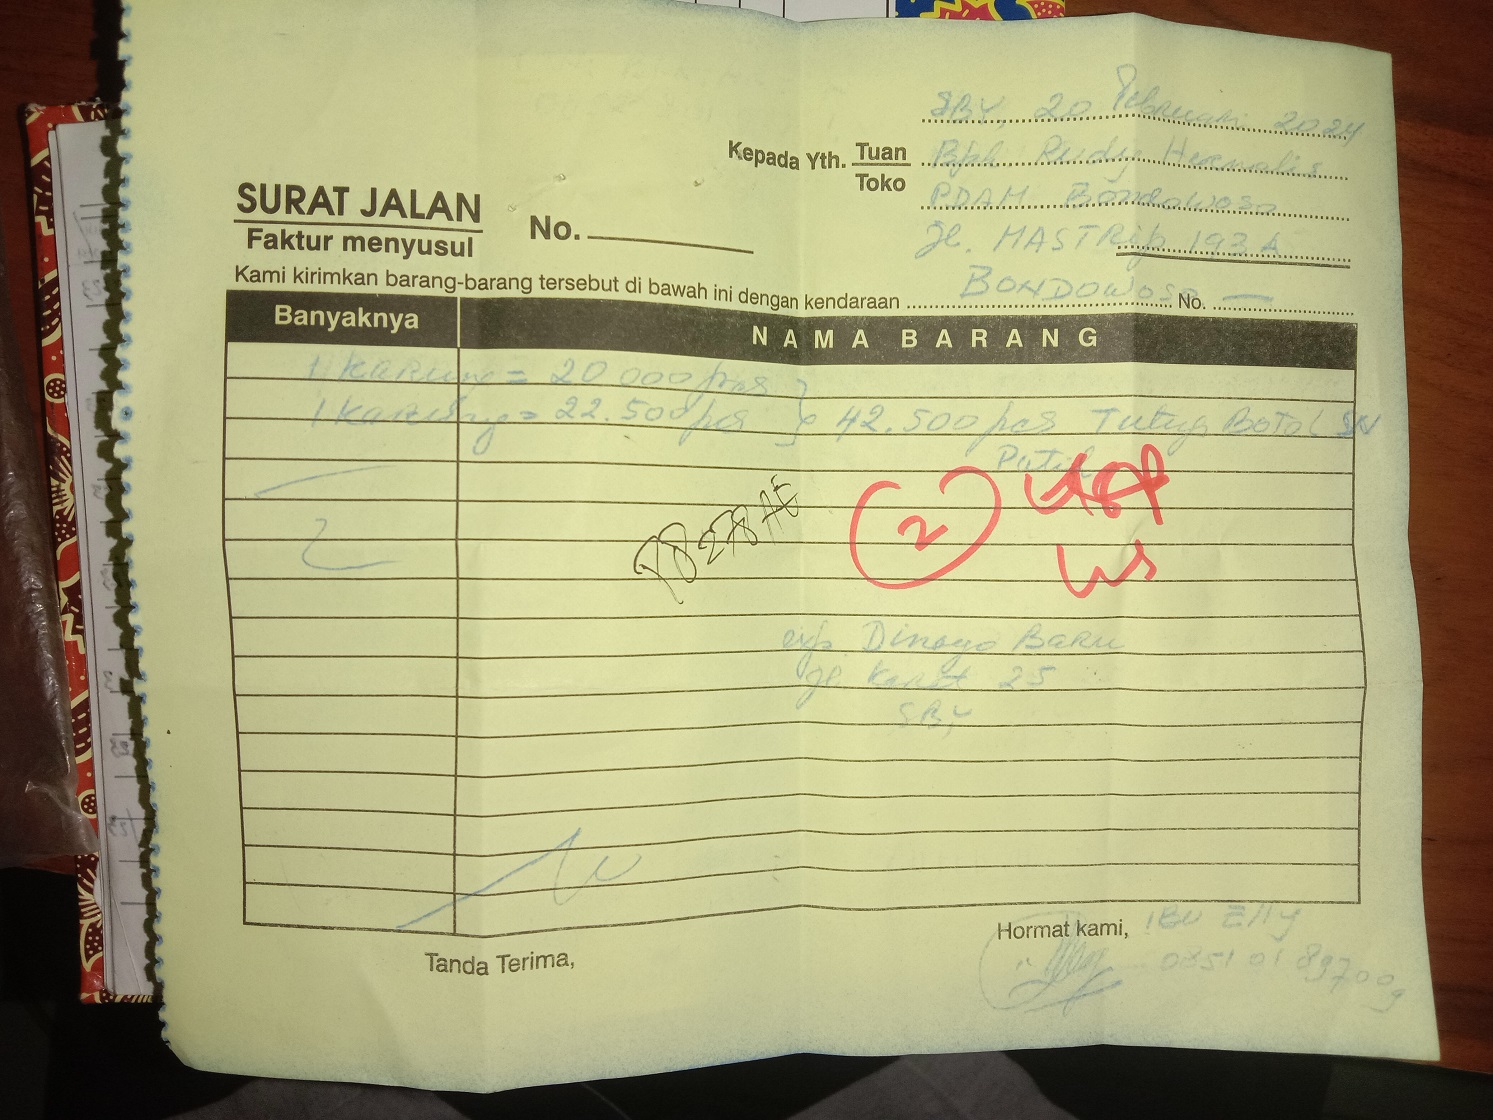 SBY, 20 Februari 2024
Kepada Yth. Tuan
Toko
Bpk Rudy Hernalis
PDAM Bondowoso
Jl. MASTRip 193 A
BONDOWOSO
SURAT JALAN
Faktur menyusul
No.
Kami kirimkan barang-barang tersebut di bawah ini dengan kendaraan No. —
Banyaknya NAMA BARANG
1 karung = 20 000 pcs
1 karung = 22.500 pcs } 42.500 pcs Tutup Botol
Putih
2
P8278AE
Dinoyo Baru
jl. Karet 25
SBY
Tanda Terima,
Hormat kami, IBU Elly